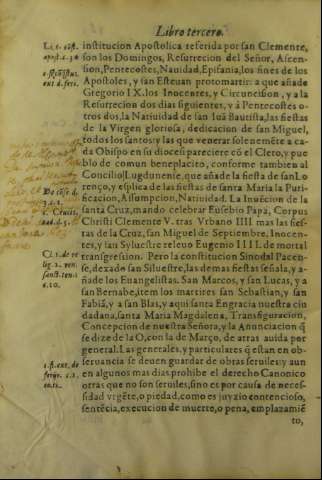 Libro tercero.
institucion Apostolica referida por san Clemente,
son los Domingos, Resurrecion del Señor, Ascen-
sion, Pentecostes, Nauidad, Epifania, los fines de los
Apostoles, y san Esteuan protomartir: a que añade
Gregorio IX. los Inocentes, y Circuncision, y a la
Resurrecion dos dias siguientes, y á Pentecostes o-
tros dos, la Natiuidad de san Iuā Bautista, las fiestas
de la Virgen gloriosa, dedicacion de san Miguel,
todos los santos y las que venerar solenemēte a ca-
da Obispo en su diocesi pareciere cō el Clero, y pue
blo de comun beneplacito, conforme tambien al
Concilio Lugdunense, que añade la fiesta de san Lo
renço, y esplica de las fiestas de santa Maria la Puri-
ficacion, Assumpcion, Natiuidad. La Inuēcion de la
santa Cruz, mando celebrar Eusebio Papa, Corpus
Christi Clemente V. tras Vrbano IIII mas las fies-
tas de la Cruz, san Miguel de Septiembre, Inocen-
tes, y san Syluestre releuo Eugenio IIII. de mortal
transgression. Pero la constitucion Sinodal Pacen-
se, dexado san Siluestre, las demas fiestas señala, y a-
ñade los Euangelistas. San Marcos, y san Lucas, y a
san Bernabe, item los martires san Sebastian, y san
Fabiā, y a san Blas, y aqui santa Engracia nuestra ciu
dadana, santa Maria Magdalena, Transfiguracion,
Concepcion de nuestra Señora, y la Anunciacion q̄
se dize de la O, con la de Março, de atras auida por
general. Las generales, y particulares q̄ estan en ob-
seruancia se deuen guardar de obras seruiles: y aun
en algunos mas dias prohibe el derecho Canonico
otras que no son seruiles, sino es por causa de neces-
sidad vrgēte, o piedad, como es juyzio contencioso,
sentēcia, execucion de muerte, o pena, emplazamiē
to,